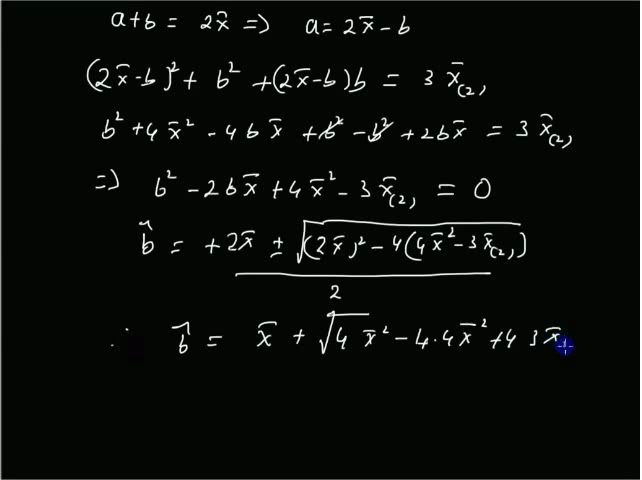 a+b = 2x̄ => a = 2x̄ - b
(2x̄-b)² + b² + (2x̄-b)b = 3x̄₍₂₎
b² + 4x̄² - 4bx̄ + b² - b² + 2bx̄ = 3x̄₍₂₎
=> b² - 2bx̄ + 4x̄² - 3x̄₍₂₎ = 0
b̂ = +2x̄ ± √((2x̄)² - 4(4x̄² - 3x̄₍₂₎))
2
∴ b̂ = x̄ + √4x̄² - 4.4x̄² + 4 3x̄